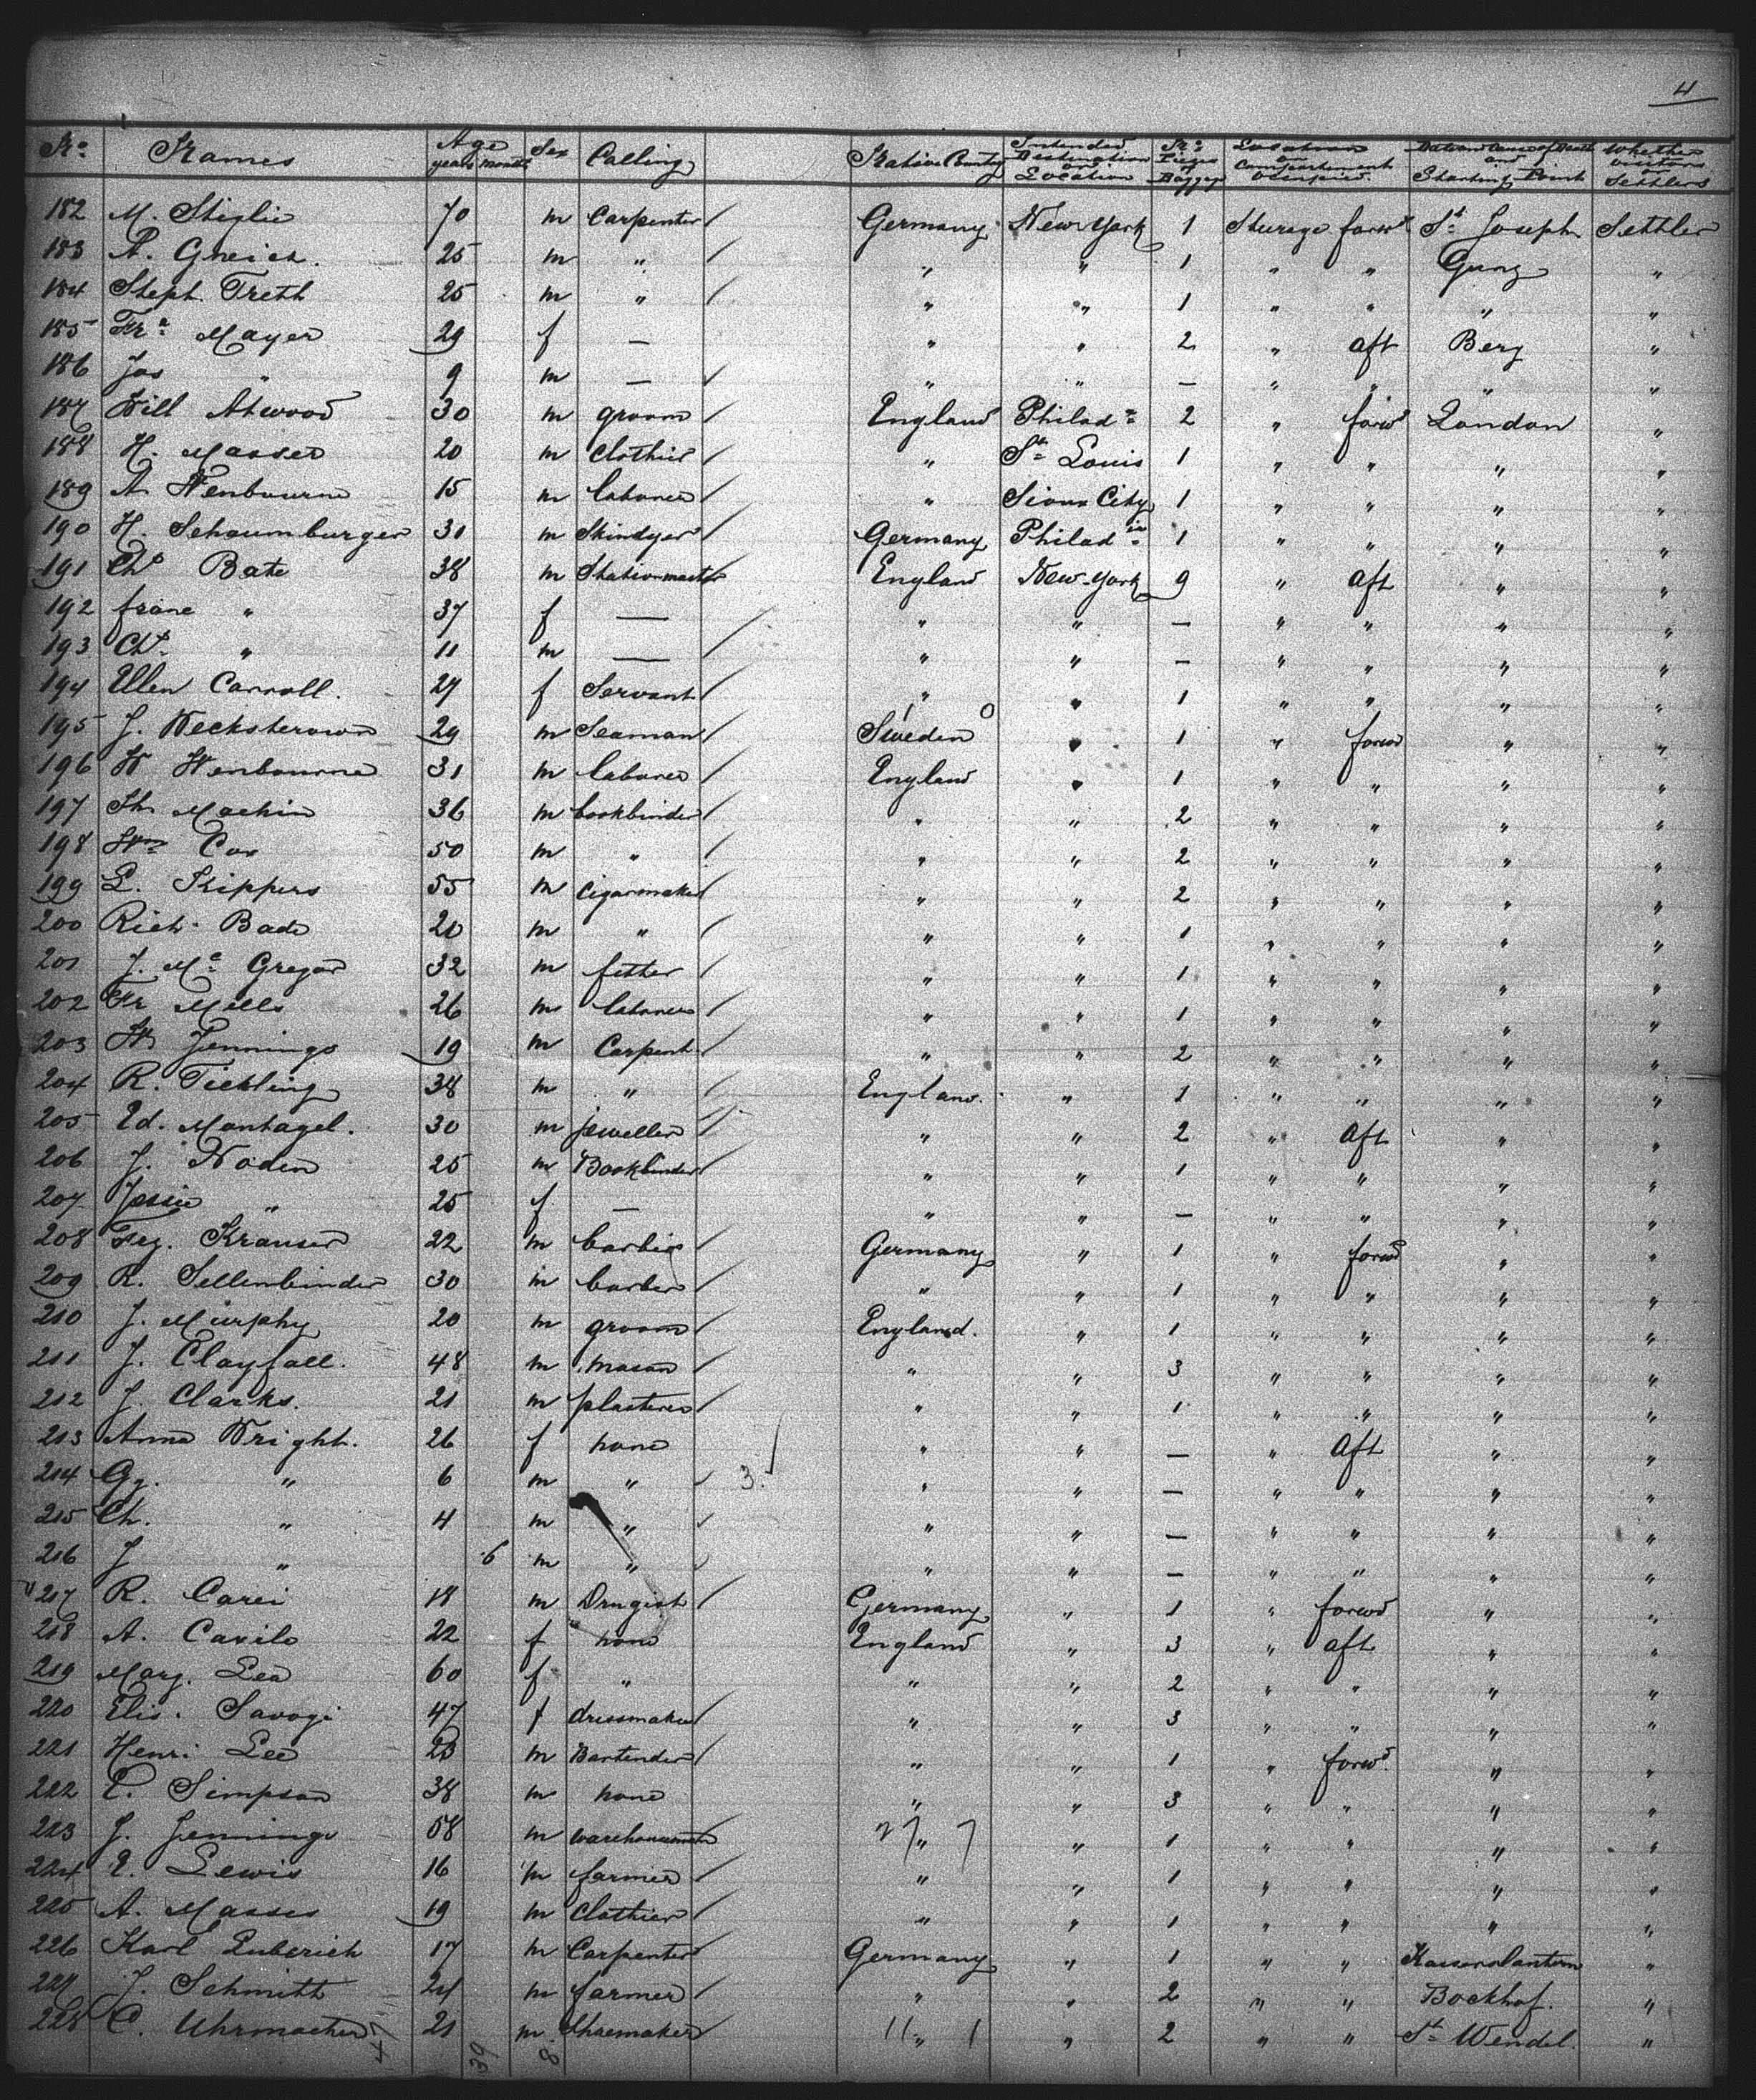 4
No. Names Age years months Sex Calling Native County Intended Destination or Location No. Pieces Baggage Location or Compartment occupied Date and Cause of Death and Starting Point Whether visitors or Settlers
182 M. Stiglie 70 m Carpenter / Germany New York 1 Sterage forwd St Joseph Settler
183 A. Gneich. 25 m " / " " 1 " " Gunz "
184 Steph. Treth 25 m " / " " 1 " " " "
185 Fra Mayer 29 f — " " 2 " aft Berg "
186 Jos " 9 m — / " " — " " " "
187 Will Atwood 30 m groom / England Philada 2 " forwd London "
188 H. Masser 20 m Clothier / " St Louis 1 " " " "
189 A. Wenbourne 15 m laborer / " Sioux City 1 " " " "
190 H. Schaumburger 31 m Skindyer / Germany Philadia 1 " " " "
191 Chs Bate 38 m Stationmaster England New-York 9 " aft " "
192 " 37 f — / " " — " " " "
193 Chs " 11 m — / " " — " " " "
194 Ellen Carroll. 27 f Servant / " " 1 " " " "
195 J. 29 m Seaman / Sweden " 1 " forwd " "
196 W Wenbourne 31 m laborer / England " 1 " " " "
197 Th Machin 36 m bookbinder / " " 2 " " " "
198 Wm Cox 50 m " / " " 2 " " " "
199 L. Kippers 55 m Cigarmaker / " " 2 " " " "
200 Rich. Bade 20 m " / " " 1 " " " "
201 J. Mc Gregor 32 m fitter / " " 1 " " " "
202 Fr Mills 26 m laborer / " " 1 " " " "
203 W Jennings 19 m Carpent. / " " 2 " " " "
204 R. Tickling 38 m " / England. " 1 " " " "
205 Ed. Montagel. 30 m jeweller / " " 2 " aft " "
206 J. Noden 25 m Bookbinder / " " 1 " " " "
207 Jessie " 25 f — " " — " " " "
208 Feg. Krauser 22 m barbier / Germany " 1 " forwd " "
209 R. Sellenbinder 30 m barber / " " 1 " " " "
210 J. Murphy 20 m groom / England. " 1 " " " "
211 J. Clayfall. 48 m mason / " " 3 " " " "
212 J. Clarks. 21 m plasterer / " " 1 " " " "
213 Anna Wright. 26 f none " " — " aft " "
214 Gg. " 6 m " / 3. / " " — " " " "
215 Ch. " 4 m " / " " — " " " "
216 J " 6 m " / " " — " " " "
217 R. Carei 18 m Drugist / Germany " 1 " forwd " "
218 A. Cavile 22 f none England " 3 " aft " "
219 Marg. Lea 60 f " " " 2 " " " "
220 Elis. Savogi 47 f dressmaker / " " 3 " " " "
221 Henri Lee 23 m Bartender / " " 1 " forwd. " "
222 E. Simpson 38 m none " " 3 " " " "
223 J. Jennings 58 m warehouseman 27 " 7 " 1 " " " "
224 E. Lewis 16 m farmer / " " 1 " " " "
225 A. Masses 19 m Clothier / " " 1 " " " "
226 Karl Luberich 17 m Carpenter Germany " 1 " " Kaiserslautern "
227 J. Schmitt 24 m farmer / " " 2 " " Bockhof. "
228 C. Uhrmacher 21 m. Shoemaker / 11 " 1 " 2 " " St Wendel. "
47 39 8